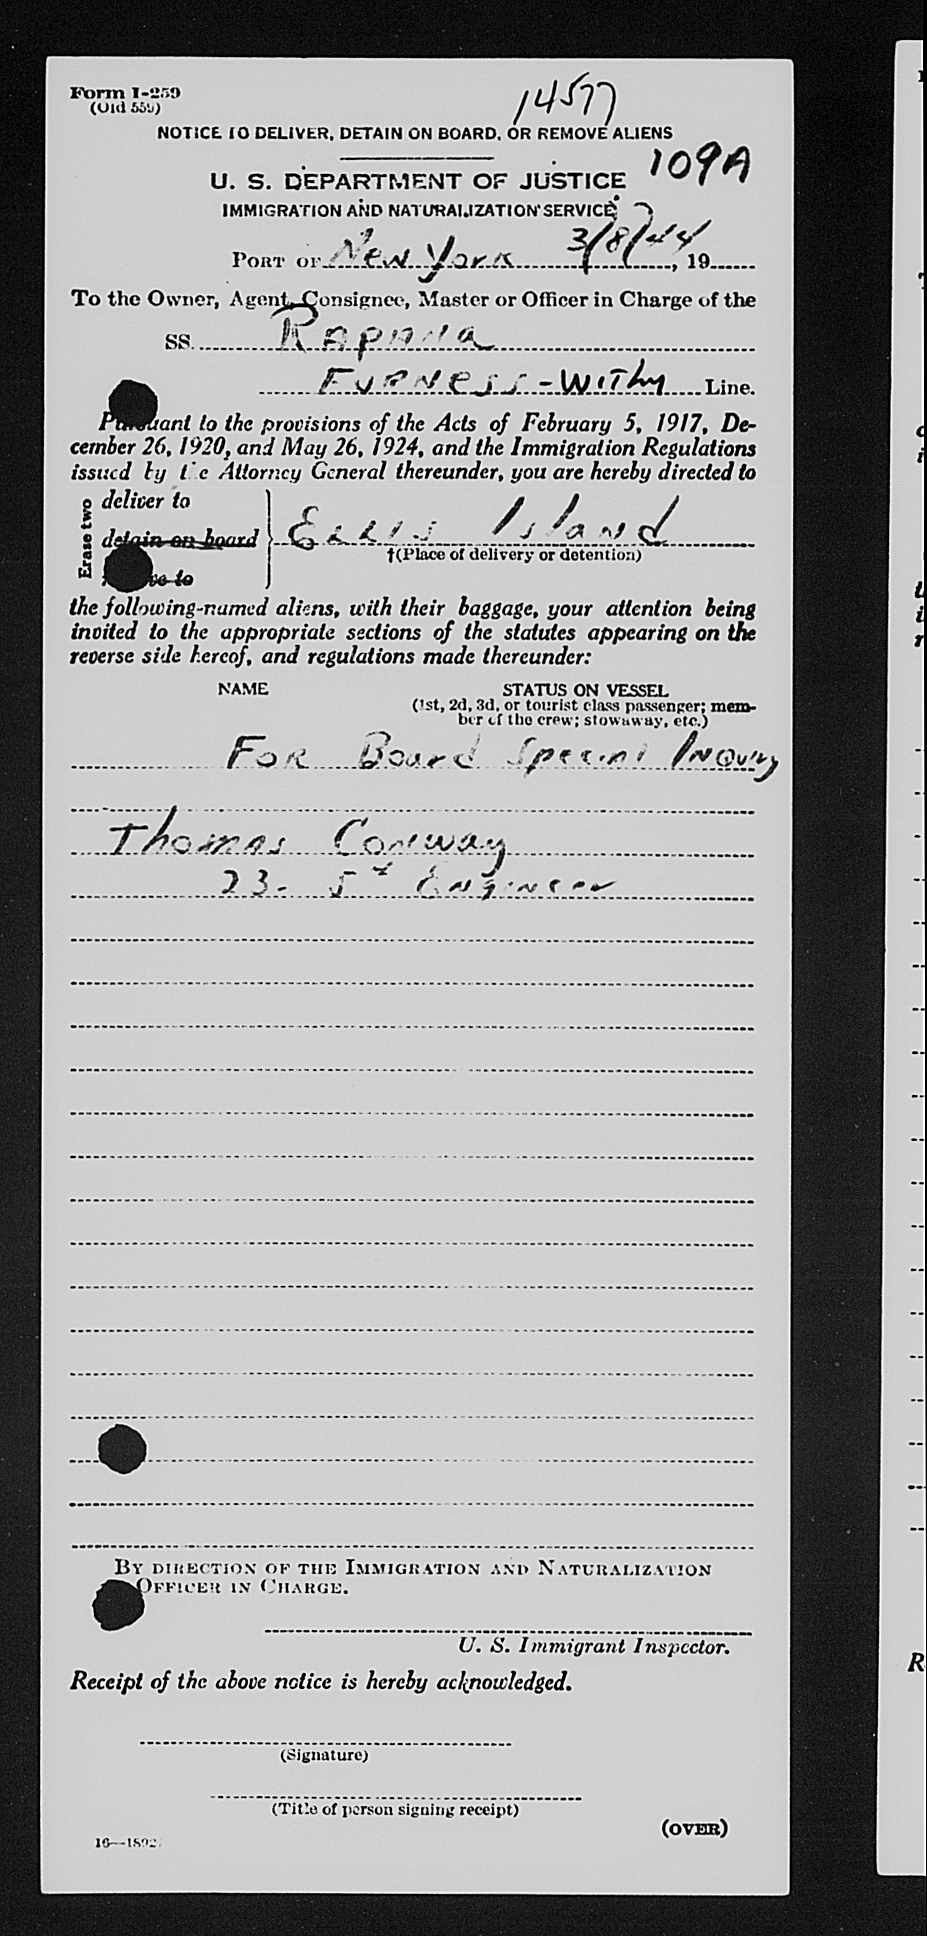 Form I-259
(Old 559)
14577
NOTICE TO DELIVER, DETAIN ON BOARD, OR REMOVE ALIENS
109A
U. S. DEPARTMENT OF JUSTICE
IMMIGRATION AND NATURALIZATION SERVICE
PORT OF New York 3/8/44, 19
To the Owner, Agent, Consignee, Master or Officer in Charge of the
SS. RAPANA
FURNESS-WITHY Line.
Pursuant to the provisions of the Acts of February 5, 1917, De-
cember 26, 1920, and May 26, 1924, and the Immigration Regulations
issued by the Attorney General thereunder, you are hereby directed to
Erase two
deliver to
detain on board
Ellis Island
†(Place of delivery or detention)
to
the following-named aliens, with their baggage, your attention being
invited to the appropriate sections of the statutes appearing on the
reverse side hereof, and regulations made thereunder:
NAME STATUS ON VESSEL
(1st, 2d, 3d, or tourist class passenger; mem-
ber of the crew; stowaway, etc.)
For Board Special Inquiry
Thomas Conway
23- 5th Engineer
BY DIRECTION OF THE IMMIGRATION AND NATURALIZATION
OFFICER IN CHARGE.
U. S. Immigrant Inspector.
Receipt of the above notice is hereby acknowledged.
(Signature)
(Title of person signing receipt)
(OVER)
16—1892